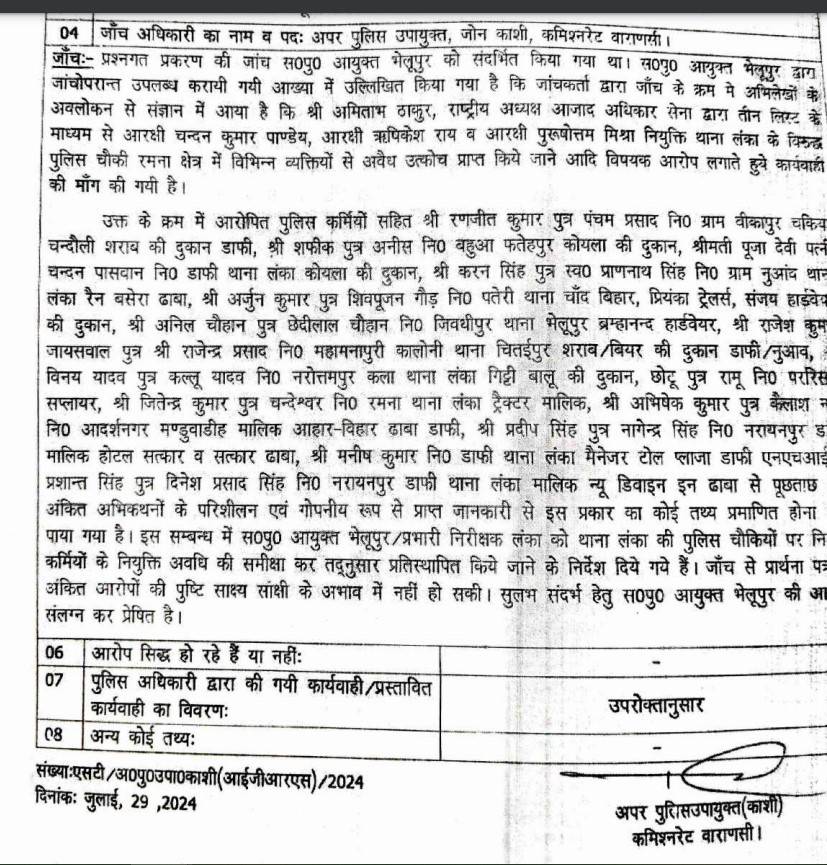 04 जाँच अधिकारी का नाम व पदः अपर पुलिस उपायुक्त, जोन काशी, कमिश्नरेट वाराणसी।
जाँचः- प्रश्नगत प्रकरण की जांच स0पु0 आयुक्त भेलूपुर को संदर्भित किया गया था। स0पु0 आयुक्त भेलूपुर द्वारा
जांचोपरान्त उपलब्ध करायी गयी आख्या में उल्लिखित किया गया है कि जांचकर्ता द्वारा जाँच के क्रम मे अभिलेखों के
अवलोकन से संज्ञान में आया है कि श्री अमिताभ ठाकुर, राष्ट्रीय अध्यक्ष आजाद अधिकार सेना द्वारा तीन लिस्ट के
माध्यम से आरक्षी चन्दन कुमार पाण्डेय, आरक्षी ऋषिकेश राय व आरक्षी पुरूषोत्तम मिश्रा नियुक्ति थाना लंका के विरुद्ध
पुलिस चौकी रमना क्षेत्र में विभिन्न व्यक्तियों से अवैध उत्कोच प्राप्त किये जाने आदि विषयक आरोप लगाते हुये कार्यवाही
की माँग की गयी है।
उक्त के क्रम में आरोपित पुलिस कर्मियों सहित श्री रणजीत कुमार पुत्र पंचम प्रसाद नि0 ग्राम वीकापुर चकिय
चन्दौली शराब की दुकान डाफी, श्री शफीक पुत्र अनीस नि0 बहुआ फतेहपुर कोयला की दुकान, श्रीमती पूजा देवी पत्नी
चन्दन पासवान नि0 डाफी थाना लंका कोयला की दुकान, श्री करन सिंह पुत्र स्व0 प्राणनाथ सिंह नि0 ग्राम नुआंद थान
लंका रैन बसेरा ढाबा, श्री अर्जुन कुमार पुत्र शिवपूजन गौड़ नि0 पतेरी थाना चाँद बिहार, प्रियंका ट्रेलर्स, संजय हाईवेय
की दुकान, श्री अनिल चौहान पुत्र छेदीलाल चौहान नि0 जिवधीपुर थाना भेलूपुर ब्रम्हानन्द हार्डवेयर, श्री राजेश कुम
जायसवाल पुत्र श्री राजेन्द्र प्रसाद नि0 महामनापुरी कालोनी थाना चितईपुर शराब/बियर की दुकान डाफी/नुआव,
विनय यादव पुत्र कल्लू यादव नि0 नरोत्तमपुर कला थाना लंका गिट्टी बालू की दुकान, छोटू पुत्र रामू नि0 परिस
सप्लायर, श्री जितेन्द्र कुमार पुत्र चन्देश्वर नि0 रमना थाना लंका ट्रैक्टर मालिक, श्री अभिषेक कुमार पुत्र कैलाश न
नि0 आदर्शनगर मण्डुवाडीह मालिक आहार-विहार ढाबा डाफी, श्री प्रदीप सिंह पुत्र नागेन्द्र सिंह नि0 नरायनपुर ड
मालिक होटल सत्कार व सत्कार ढाबा, श्री मनीष कुमार नि0 डाफी थाना लंका मैनेजर टोल प्लाजा डाफी एनएचआई
प्रशान्त सिंह पुत्र दिनेश प्रसाद सिंह नि0 नरायनपुर डाफी थाना लंका मालिक न्यू डिवाइन इन ढाबा से पूछताछ
अंकित अभिकथनों के परिशीलन एवं गोपनीय रूप से प्राप्त जानकारी से इस प्रकार का कोई तथ्य प्रमाणित होना
पाया गया है। इस सम्बन्ध में स0पु0 आयुक्त भेलूपुर/प्रभारी निरीक्षक लंका को थाना लंका की पुलिस चौकियों पर नि
कर्मियों के नियुक्ति अवधि की समीक्षा कर तद्नुसार प्रतिस्थापित किये जाने के निर्देश दिये गये हैं। जाँच से प्रार्थना पत्र
अंकित आरोपों की पुष्टि साक्ष्य सांक्षी के अभाव में नहीं हो सकी। सुलभ संदर्भ हेतु स0पु0 आयुक्त भेलूपुर की आ
संलग्न कर प्रेषित है।
06 आरोप सिद्ध हो रहे हैं या नहींः -
07 पुलिस अधिकारी द्वारा की गयी कार्यवाही/प्रस्तावित
कार्यवाही का विवरणः उपरोक्तानुसार
08 अन्य कोई तथ्यः -
संख्याःएसटी/अ0पु0उपा0काशी(आईजीआरएस)/2024
दिनांकः जुलाई, 29 ,2024
अपर पुलिसउपायुक्त(काशी)
कमिश्नरेट वाराणसी।